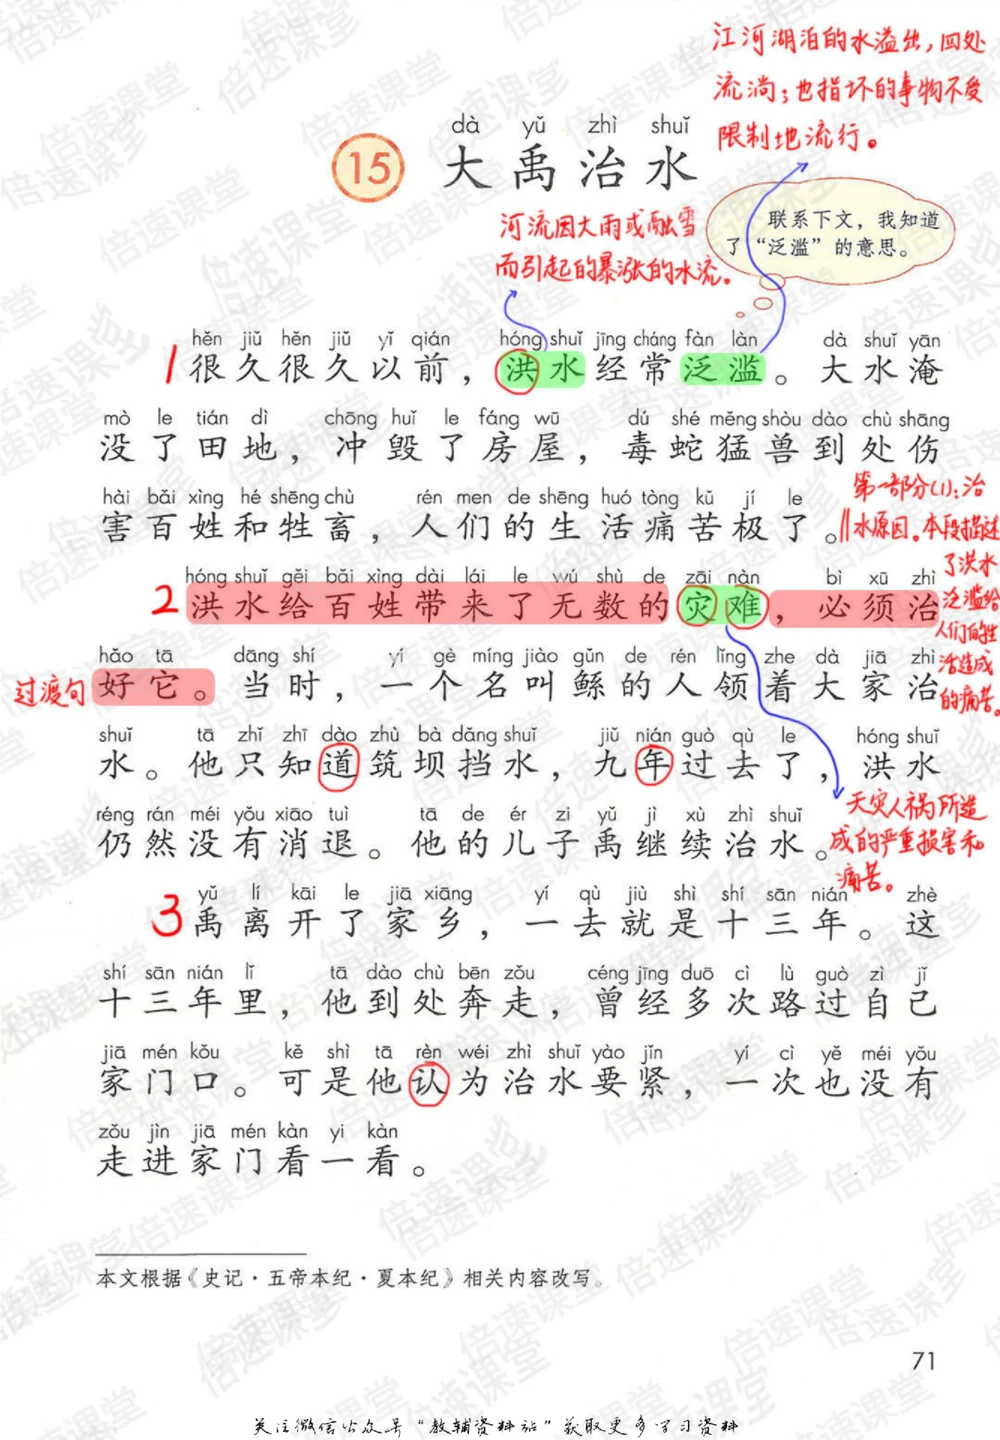 江河湖泊的水溢出，四处
流淌；也指坏的事物不受
限制地流行。
dà yǔ zhì shuǐ
15 大禹治水
联系下文，我知道
了“泛滥”的意思。
河流因大雨或融雪
而引起的暴涨的水流。
hěn jiǔ hěn jiǔ yǐ qián hóng shuǐ jīng cháng fàn làn dà shuǐ yān
1 很久很久以前，洪水经常泛滥。大水淹
mò le tián dì chōng huǐ le fáng wū dú shé měng shòu dào chù shāng
没了田地，冲毁了房屋，毒蛇猛兽到处伤
hài bǎi xìng hé shēng chù rén men de shēng huó tòng kǔ jí le
害百姓和牲畜，人们的生活痛苦极了。
第一部分(1)：治
水原因。本段描述
了洪水
泛滥给
人们的生
活造成
的痛苦。
hóng shuǐ gěi bǎi xìng dài lái le wú shù de zāi nàn bì xū zhì
2 洪水给百姓带来了无数的灾难，必须治
hǎo tā dāng shí yí gè míng jiào gǔn de rén lǐng zhe dà jiā zhì
过渡句
好它。当时，一个名叫鲧的人领着大家治
shuǐ tā zhǐ zhī dào zhù bà dǎng shuǐ jiǔ nián guò qù le hóng shuǐ
水。他只知道筑坝挡水，九年过去了，洪水
réng rán méi yǒu xiāo tuì tā de ér zi yǔ jì xù zhì shuǐ
仍然没有消退。他的儿子禹继续治水。
天灾人祸所造
成的严重损害和
痛苦。
yǔ lí kāi le jiā xiāng yí qù jiù shì shí sān nián zhè
3 禹离开了家乡，一去就是十三年。这
shí sān nián lǐ tā dào chù bēn zǒu céng jīng duō cì lù guò zì jǐ
十三年里，他到处奔走，曾经多次路过自己
jiā mén kǒu kě shì tā rèn wéi zhì shuǐ yào jǐn yí cì yě méi yǒu
家门口。可是他认为治水要紧，一次也没有
zǒu jìn jiā mén kàn yi kàn
走进家门看一看。
本文根据《史记·五帝本纪·夏本纪》相关内容改写。
71
关注微信公众号“教辅资料站”获取更多学习资料
倍速课堂